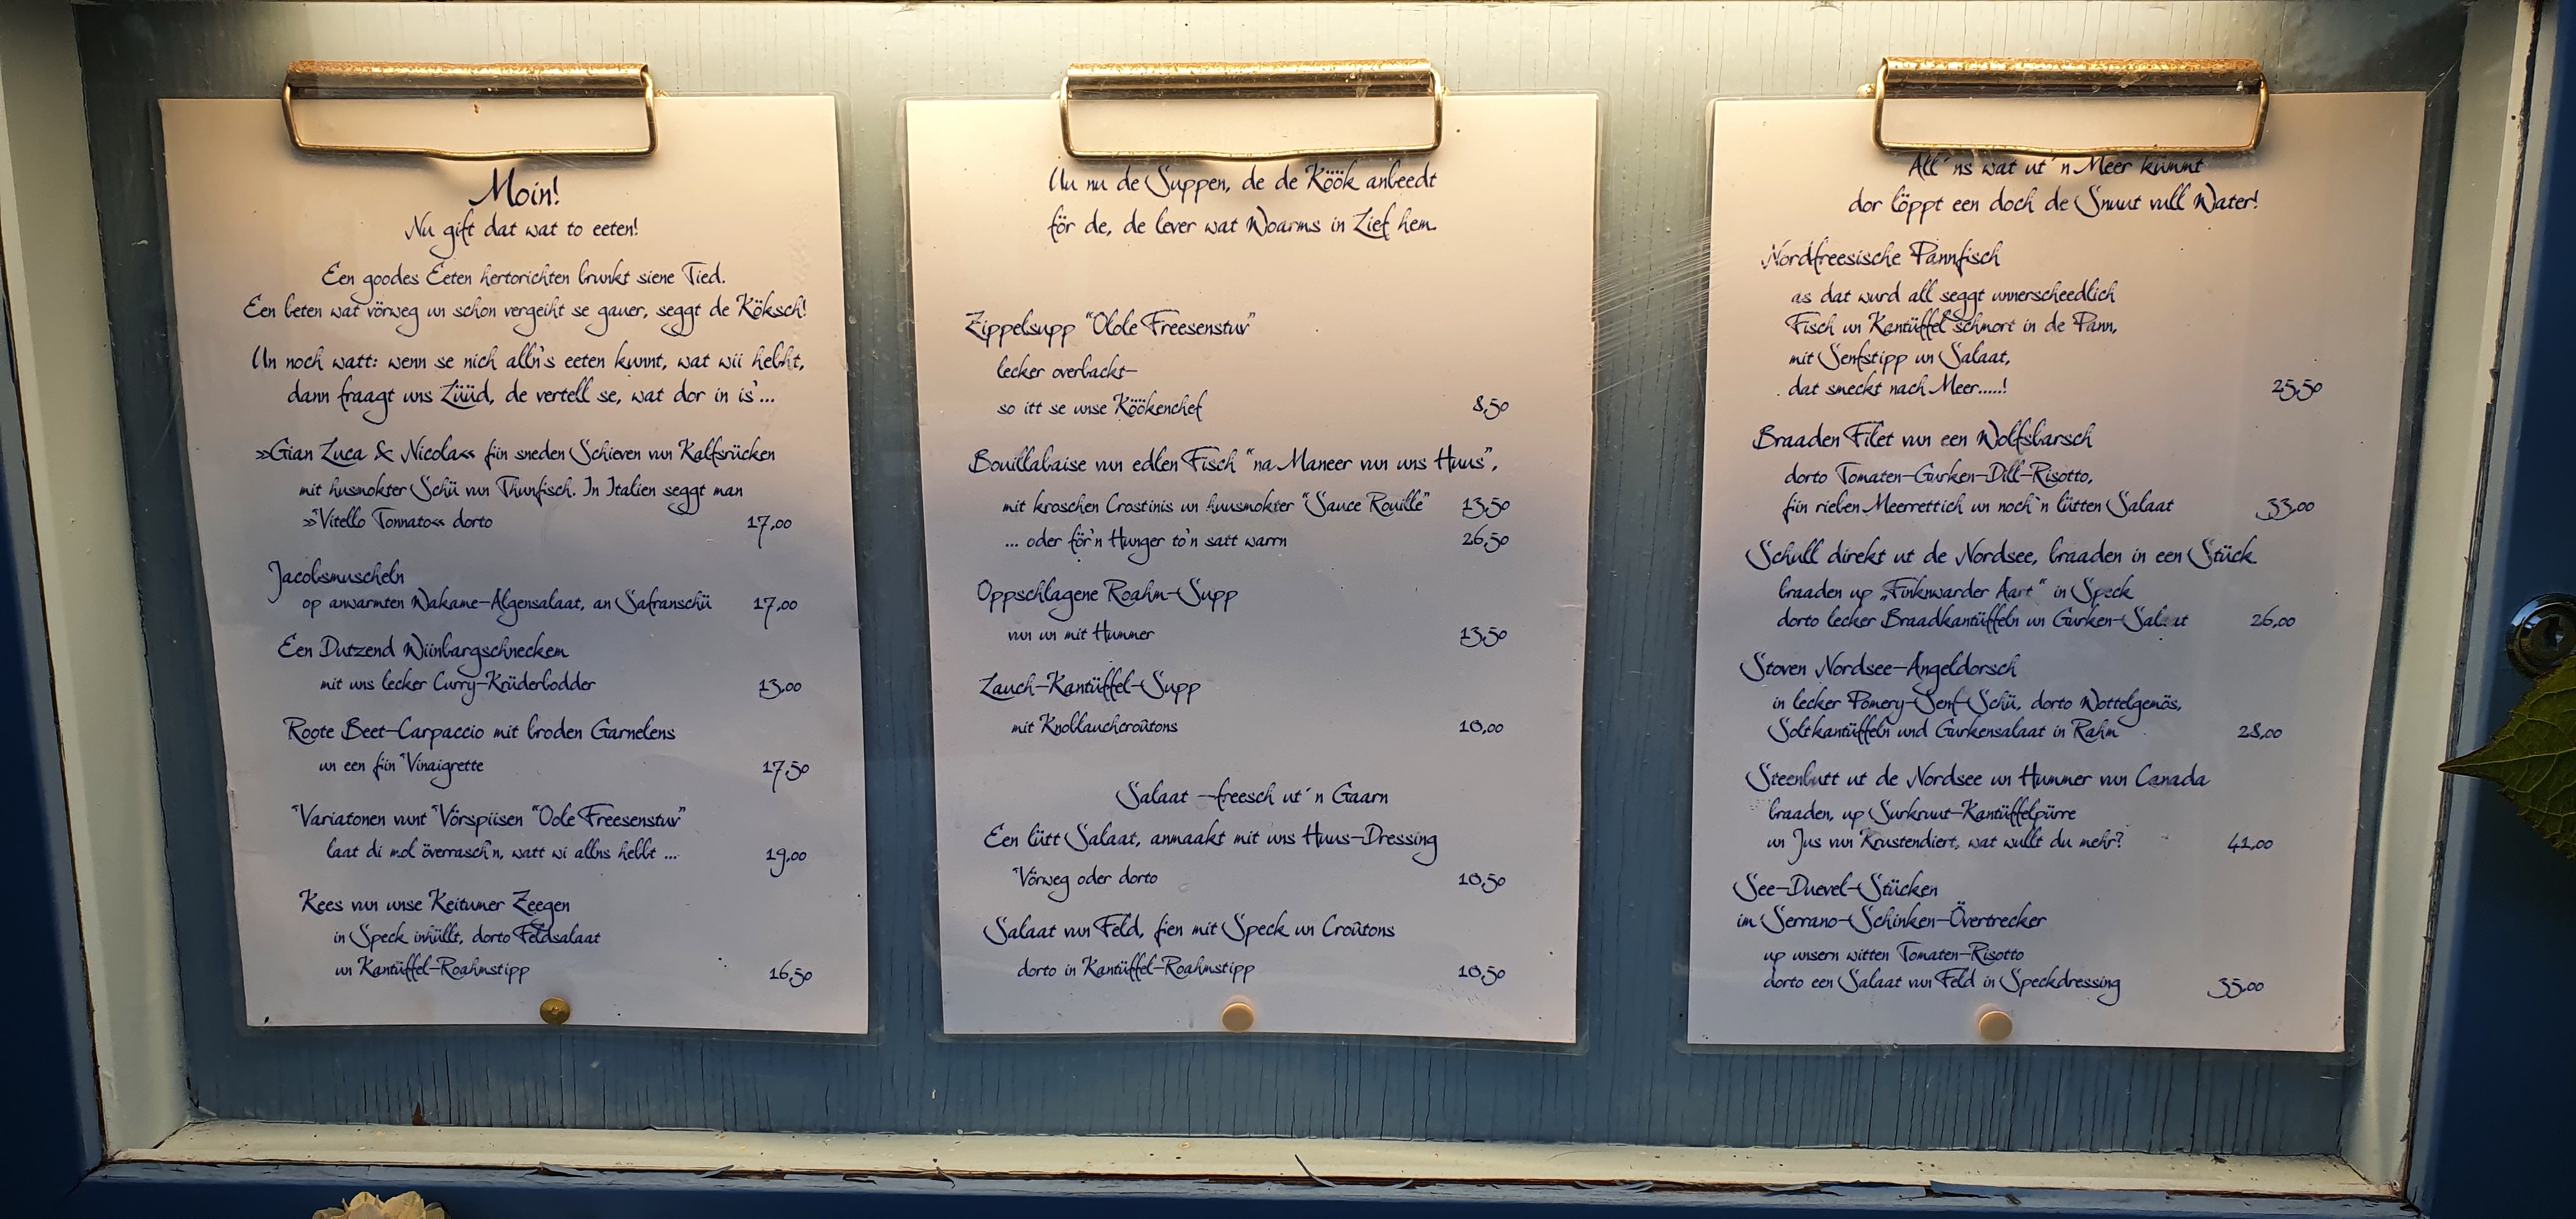 Moin!
Nu gift dat wat to eeten!
Een goodes Eeten hertorichten brunkt siene Tied.
Een beten wat vörweg un schon vergeiht se gauer, seggt de Köksch!
Un noch watt: wenn se nich alln's eeten kunnt, wat wii hebht,
dann fraagt uns Lüüd, de vertell se, wat dor in is'...
»Gian Luca & Nicola« fiin sneden Schieven vun Kalfsrücken
mit husmokter Schü vun Thunfisch. In Italien seggt man
»Vitello Tonnato« dorto 17,00
Jacobsmuscheln
op anwarmten Wakame-Algensalaat, an Safranschü 17,00
Een Dutzend Wiinbargschnecken
mit uns lecker Curry-Krüderbodder 13,00
Roote Beet-Carpaccio mit broden Garnelens
un een fiin Vinaigrette 17,50
Variatonen vunt Vörspiisen "Oole Freesenstuv"
laat di mol överrasch'n, watt wi allns hebbt ... 19,00
Kees vun unse Keitumer Zeegen
in Speck inhüllt, dorto Feldsalaat
un Kantüffel-Roahmstipp 16,50
Un nu de Suppen, de de Köök anbeedt
för de, de lever wat Woarms in Lief hem.
Zippelsupp "Olole Freesenstuv"
lecker overbackt-
so itt se unse Köökenchef 8,50
Bouillabaise vun edlen Fisch "na Maneer vun uns Huus",
mit kroschen Crostinis un huusmokter "Sauce Rouille" 13,50
... oder för'n Hunger to'n satt warrn 26,50
Oppschlagene Roahm-Supp
vun un mit Hummer 13,50
Lauch-Kantüffel-Supp
mit Knoblauchcroûtons 10,00
Salaat -freesch ut´n Gaarn
Een lütt Salaat, anmaakt mit uns Huus-Dressing
Vörweg oder dorto 10,50
Salaat vun Feld, fien mit Speck un Croûtons
dorto in Kantüffel-Roahmstipp 10,50
All´ns wat ut´n Meer kümmt
dor löppt een doch de Snuut vull Water!
Nordfreesische Pannfisch
as dat wurd all seggt unnerscheedlich
Fisch un Kantüffel schmort in de Pann,
mit Senfstipp un Salaat,
dat smeckt nach Meer.....! 25,50
Braaden Filet vun een Wolfsbarsch
dorto Tomaten-Gurken-Dill-Risotto,
fiin rieben Meerrettich un noch`n lütten Salaat 33,00
Schull direkt ut de Nordsee, braaden in een Stück
braaden up „Finknwarder Aart“ in Speck
dorto lecker Braadkantüffeln un Gurken-Salaat 26,00
Stoven Nordsee-Angeldorsch
in lecker Pomery-Senf-Schü, dorto Wottelgemös,
Soltkantüffeln und Gurkensalaat in Rahm 28,00
Steenbutt ut de Nordsee un Hummer vun Canada
braaden, up Surkruut-Kantüffelpürre
un Jus vun Krustendiert, wat wullt du mehr? 41,00
See-Duevel-Stücken
im Serrano-Schinken-Övertrecker
up unsern witten Tomaten-Risotto
dorto een Salaat vun Feld in Speckdressing 35,00